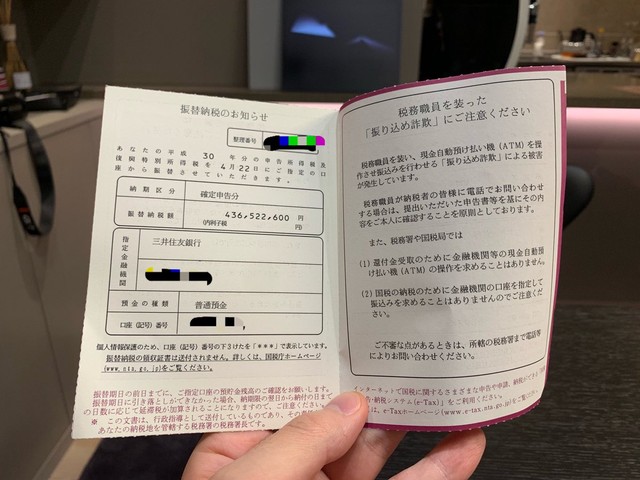 振替納税のお知らせ
整理番号
あなたの平成 30 年分の申告所得税及
復興特別所得税を4月22日にご指定の口
座から振替させていただきます。
納期区分 確定申告分
振替納税額 436,522,600 円
(内利子税 円)
指定金融機関 三井住友銀行
預金の種類 普通預金
口座(記号)番号
個人情報保護のため、口座(記号)番号の下3けたを「***」で表示しています。
振替納税の領収証書は送付されません。詳しくは、国税庁ホームページ
(www.nta.go.jp)をご覧ください。
振替期日の前日までに、ご指定口座の預貯金残高のご確認をお願いします。
振替期日に引き落としができなかった場合、納期限の翌日から納付の日まで
の日数に応じて延滞税が加算されることになりますので、ご注意ください。
※ この文書は、行政指導として送付しているものであり、その責
あなたの納税地を管轄する税務署の税務署長です。
税務職員を装った
「振り込め詐欺」にご注意ください
税務職員を装い、現金自動預け払い機(ATM)を操
作させ振込みを行わせる「振り込め詐欺」による被害
が発生しています。
税務職員が納税者の皆様に電話でお問い合わせ
する場合は、提出いただいた申告書等を基にその内
容をご本人に確認することを原則としております。
また、税務署や国税局では
(1) 還付金受取のために金融機関等の現金自動預
け払い機(ATM)の操作を求めることはありません。
(2) 国税の納税のために金融機関の口座を指定して
振込みを求めることはありませんのでご注意くださ
い。
ご不審な点があるときは、所轄の税務署まで電話等
によりお問い合わせください。
インターネットで国税に関するさまざまな申告や申請、納税ができ
告・納税システム(e-Tax)」をご利用ください。
は、e-Taxホームページ(www.e-tax.nta.go.jp)をご覧くだ